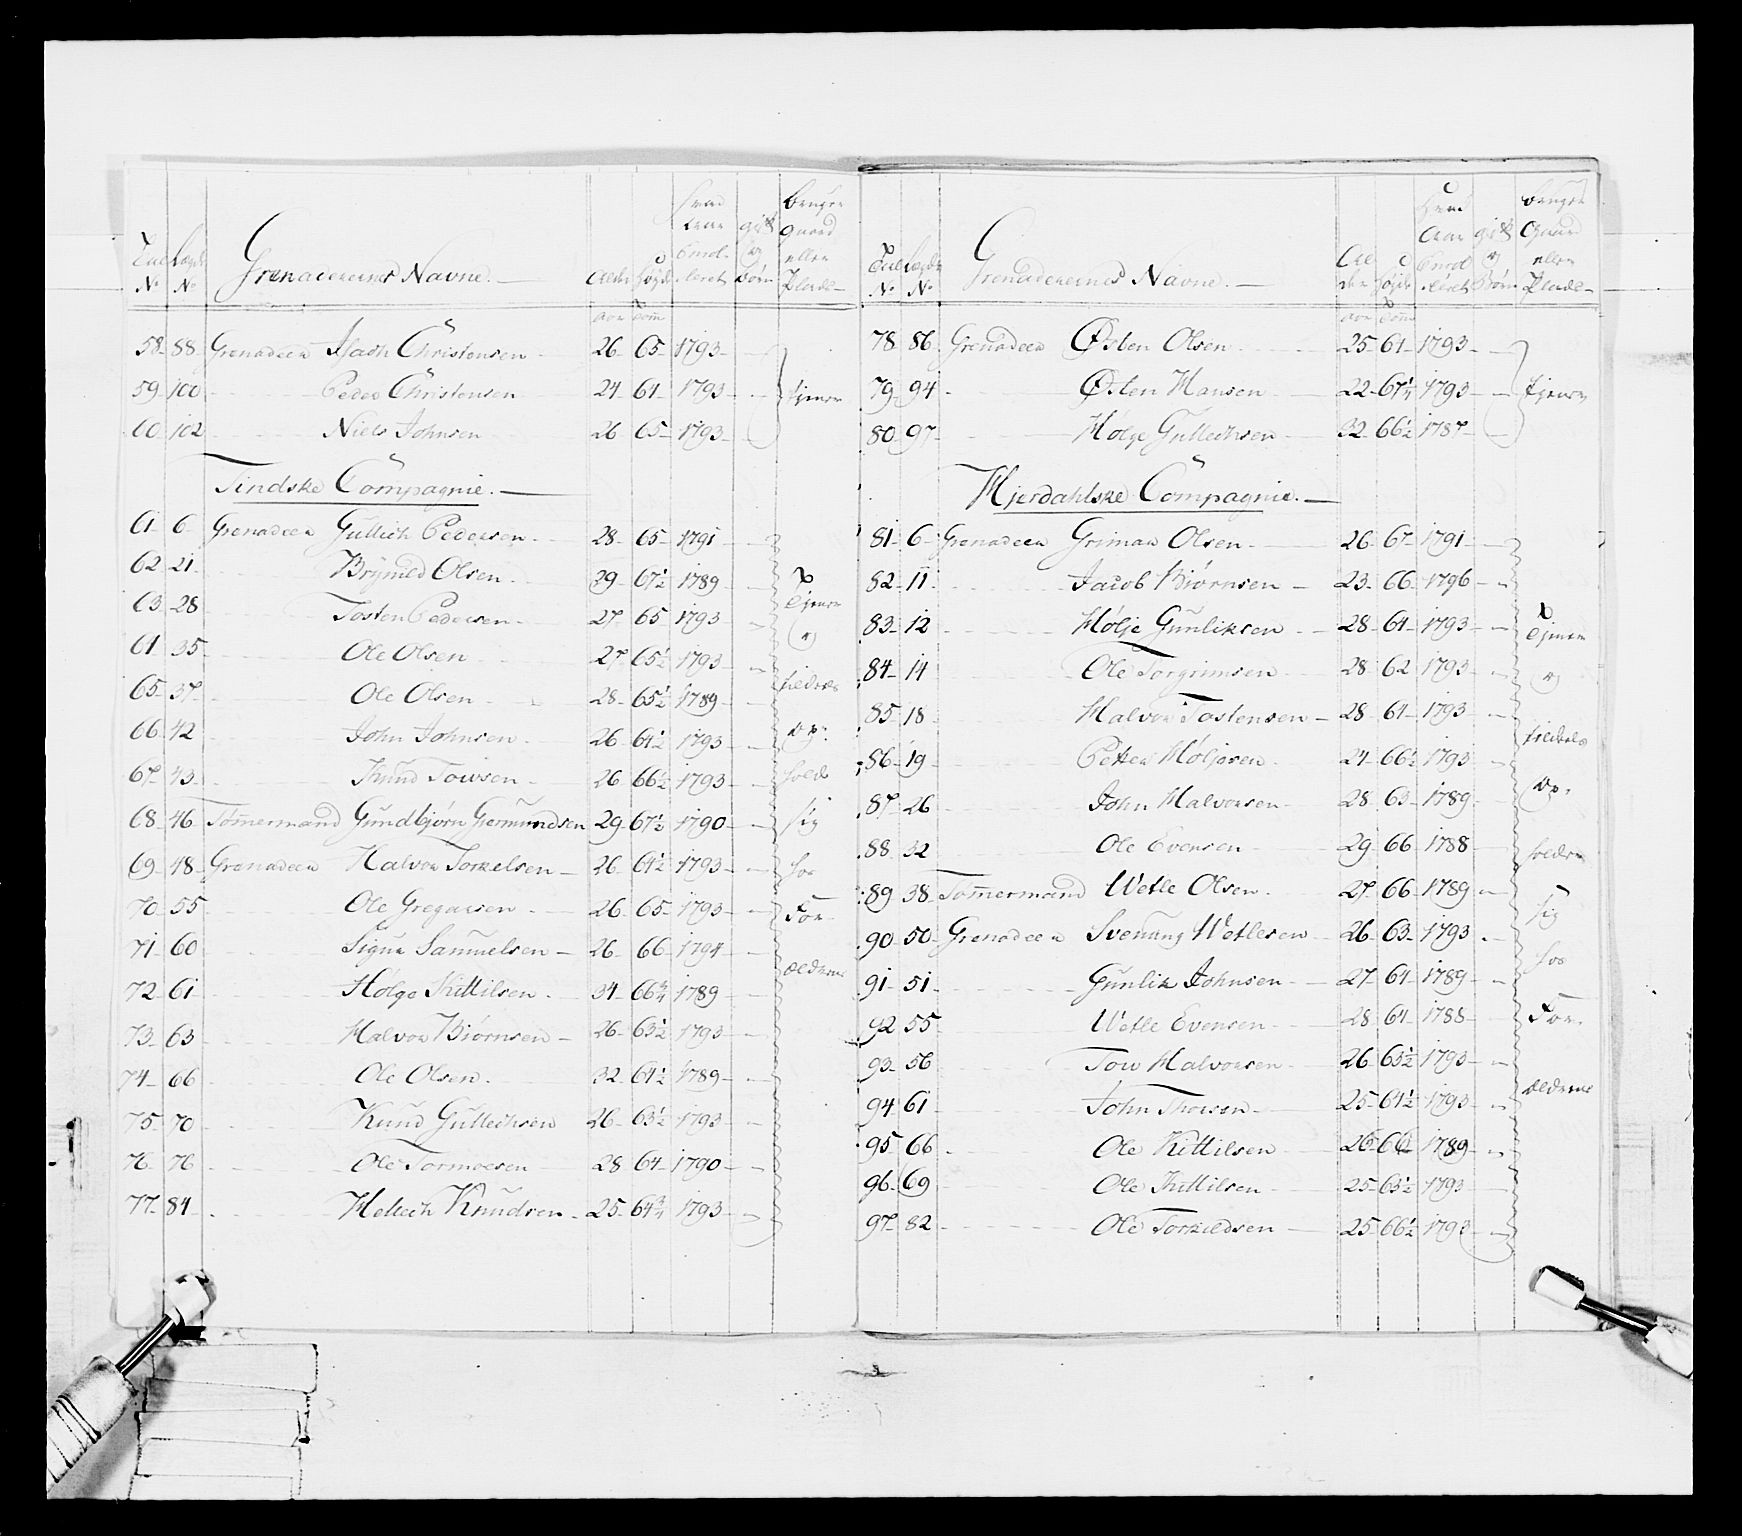 Tal No Lægds No Grenaderernes Navne. Alder Høyde Hvad Aar Enrolleret gift og Børn bruger Gaard eller Plads
Aar Tom
58 88 Grenadeer Isach Christensen 26 65 1793
59 100 Peder Christensen 24 64 1793 tjener
60 102 Niels Johnsen 26 65 1793
Tindske Compagnie.
61 6 Grenadeer Gullich Pedersen 28 65 1791
62 21 Brynild Olsen 29 67½ 1789
63 28 Tosten Pedersen 27 65 1793 Tjener
64 35 Ole Olsen 27 65½ 1793 og
65 37 Ole Olsen 28 65½ 1789 tildeels
66 42 John Johnsen 26 64½ 1793 op-
67 43 Knud Tovsen 26 66½ 1793 hold
68 46 Tømermand Gundbjørn Giermundsen 29 67½ 1790 sig
69 48 Grenadeer Halvor Torkelsen 26 64½ 1793 hos
70 55 Ole Gregarsen 26 65 1793 For-
71 60 Sigur Samuelsen 26 66 1794
72 61 Hølge Kittilsen 34 66¾ 1789 ældrene
73 63 Halvor Biørnsen 26 63½ 1793
74 66 Ole Olsen 32 64½ 1789
75 70 Knud Gullechsen 26 63½ 1793
76 76 Ole Tormoesen 28 64 1790
77 84 Hellech Knudsen 25 64¾ 1793
Tal No Lægds No Grenaderernes Navne. Alder Høyde Hvad Aar Enrolleret gift og Børn bruger Gaard eller Plads
Aar Tom
78 86 Grenadeer Østen Olsen 25 61 1793
79 94 Østen Hansen 22 67¼ 1793 tjener
80 97 Hølge Gullechsen 32 66½ 1787
Hjerdahlske Compagnie.
81 6 Grenadeer Grimar Olsen 26 67 1791
82 11 Jacob Biørnsen 23 66 1796
83 12 Hølje Gunliksen 28 64 1793 Tjener
84 14 Ole Torgrimsen 28 62 1793 og
85 18 Halvor Tostensen 28 64 1793 tildeels
86 19 Petter Høljesen 24 66½ 1793
87 26 John Halvorsen 28 63 1789 op-
88 32 Ole Evensen 29 66 1788 holder
89 38 Tømermand Wetle Olsen 27 66 1789 sig
90 50 Grenadeer Svenung Wetlesen 26 63 1793 hos
91 51 Gunlik Johnsen 27 64 1789
92 55 Wetle Evensen 28 64 1788 For-
93 56 Tov Halvorsen 26 63½ 1793
94 61 John Thorsen 25 64½ 1793 ældrene
95 66 Ole Kittilsen 26 1789
96 69 Ole Kittilsen 25 63½ 1793
97 82 Ole Torkildsen 25 66½ 1793